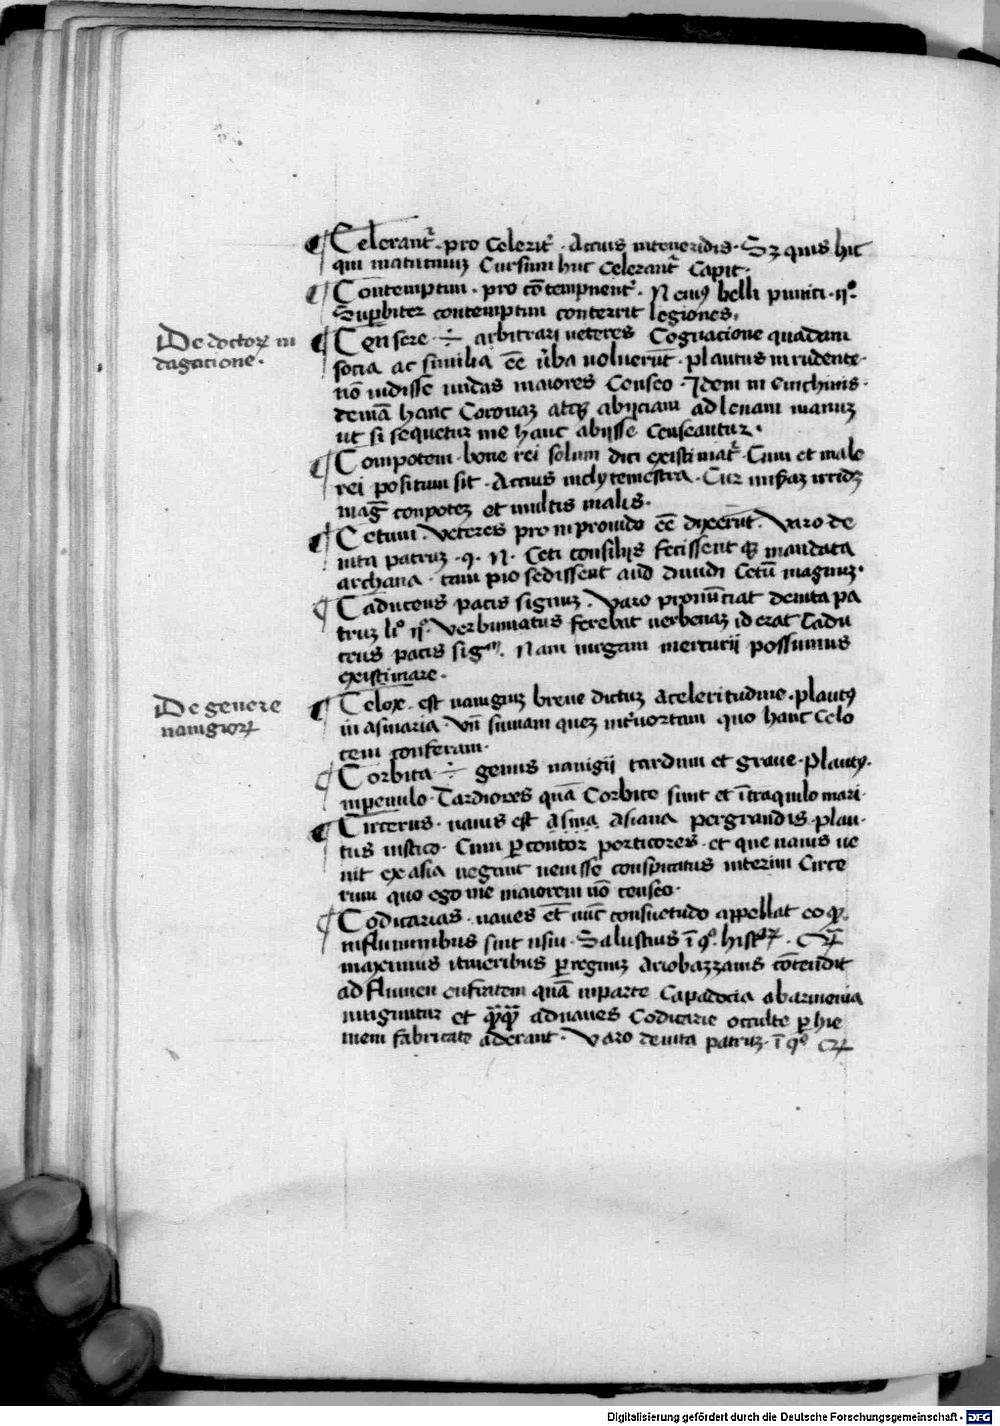 Celerant᷑ · pro Celerit᷑ · Accius in teneridis · Sꝫ quis hic
qui matutinuꝫ Cursum huc Celerant᷑ Capit ·
Contemptim · pro cōtempnent᷑ · Neuiꝯ belli punici · ijº
Suꝑbiter contemptim conterrit legiones,
De doctoꝝ in
dagacione ·
Censere · ÷ arbitrari ueteres Cognacione quadam
socia ac similia ēē u̓ba uoluerūt · plautus in rudente ·
nō uidisse undas maiores Censeo · Idem in Euchinis ·
demā hanc Coronaꝫ atqꝫ abijciam ad lenam manuꝫ
ut si sequetur me hanc abijsse Censeantur ·
Compotem · bone rei solum dici existimat᷑ · Cum et male
rei positum sit · Accius in clytemestra · Cur
maḡ conpoteꝫ et multis malis ·
Cetum · Veteres pro in prouido ēē dixerūt · Varo de
uita patruꝫ · q · N · Ceti consilijs fecissent qꝫ mandata
archana · tam pio sedissent aud diuidi Cetū magnuꝫ ·
Caduceus pacis signuꝫ · Varo pronūciat de uita pa
truꝫ liº ijº · Verbinatus ferebat uerbenaꝫ id erat Cadu
ceus pacis sigᵐ · Nam uirgam mercurij possumus
existimare ·
De genere
nauigioꝝ
Celox · est nauigiuꝫ breue dictuꝫ a celeritudine · plautꝯ
in asinaria · Vn̄ suniam queꝫ int᷑uortam quo hanc Celo
cem conferam ·
Corbita · ÷ genus nauigij tardum et graue · plautꝯ ·
in penulo · Tardiores quā Corbite sunt et ī traquilo mari ·
Circerus · nauis est asina Asiana pergrandis · plau ·
tus in stico · Cum ꝑcontor porticores · et que nauis ue
nit ex asia negant uenisse conspicatus interim Circe
rum quo ego me maiorem nō censeo ·
Codicarias · naues et̄ nūc consuetudo appellat eo ꝙ
in fluminibus sint usui · Salustius ī qº · histº᷑ꝝ ·
maximus itineribus ꝑ regnuꝫ Ariobazzanis cōtendit
ad flumen eufratem quā in parte Capadocia ab armenia
iungitur et ꝙ̄ꝙ̄ ad naues Codicarie occulte ꝑ hie
mem fabricate aderant · Varo de uita patruꝫ · ī qº